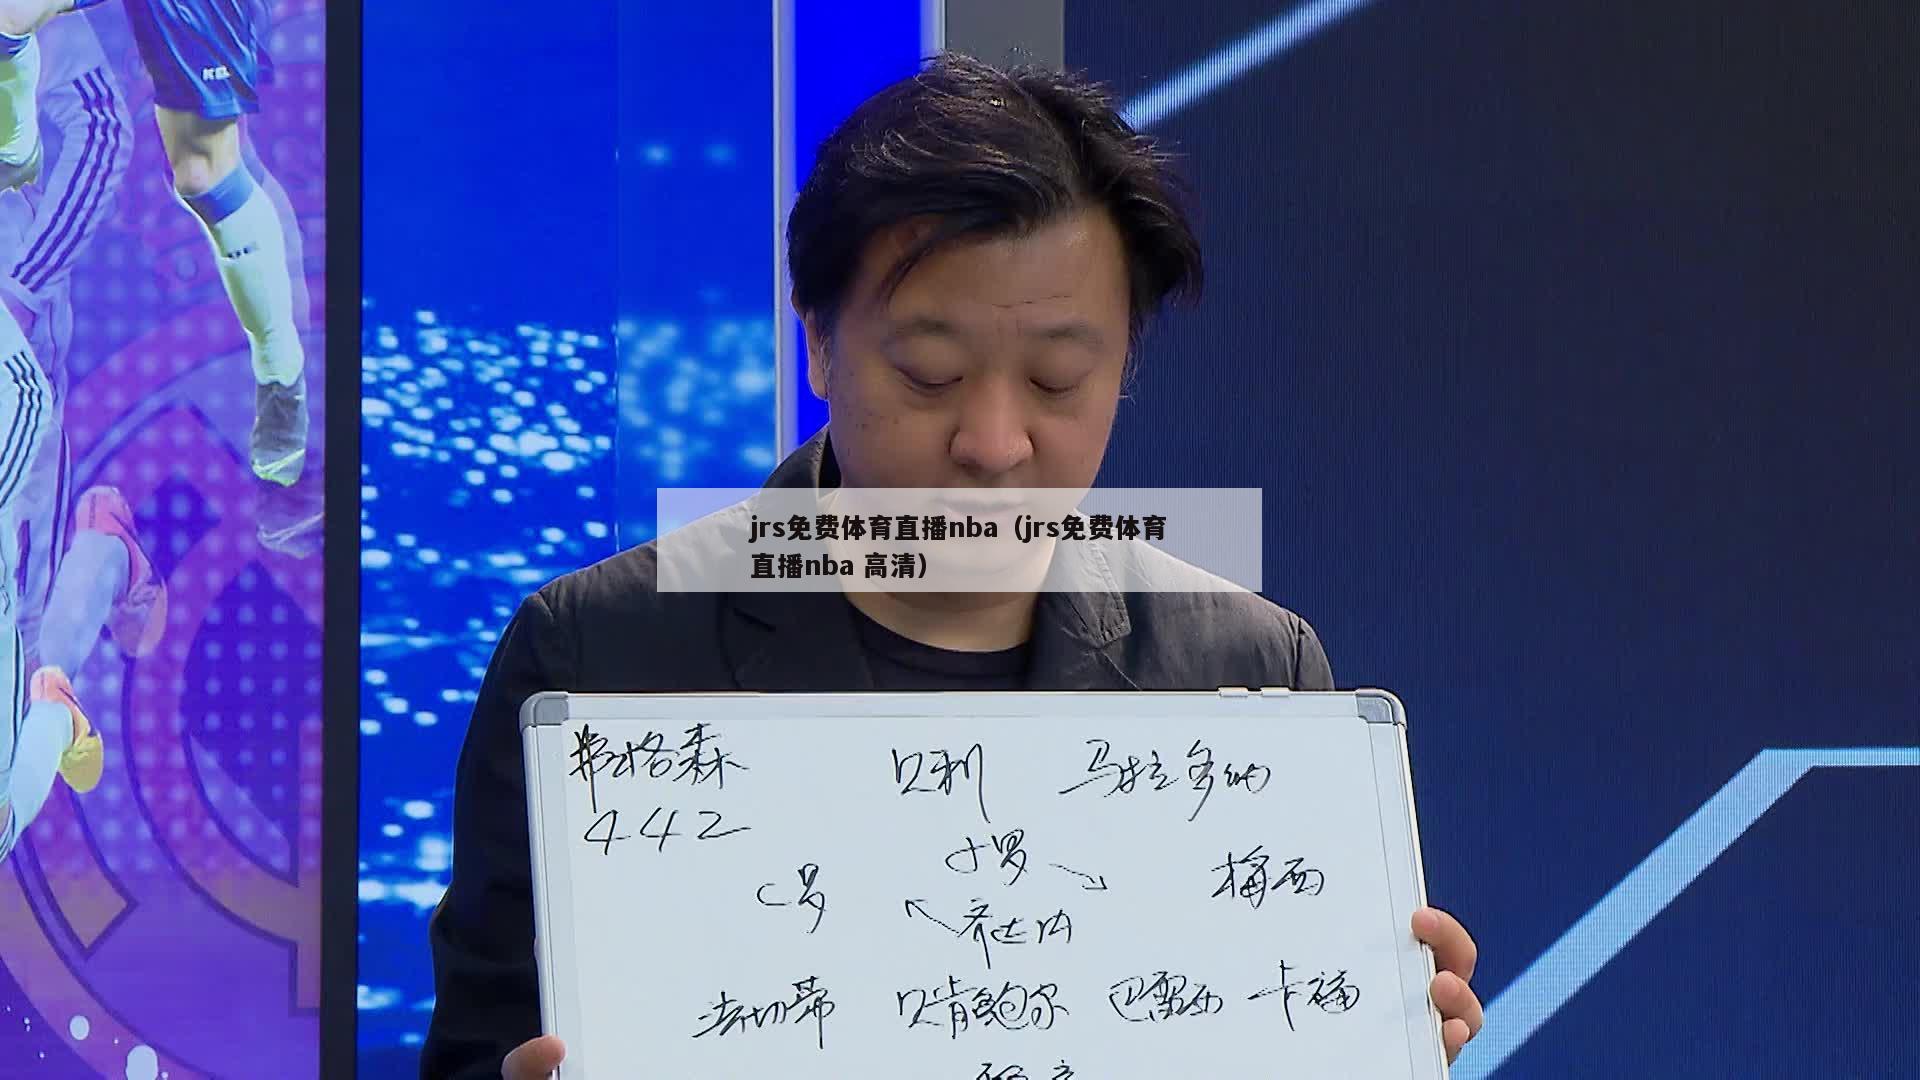 jrs免费体育直播nba（jrs免费体育
直播nba 高清）
弗格森 贝利 马拉多纳
442
小罗
C罗 梅西
齐达内
法切蒂 贝肯鲍尔 巴雷西 卡福